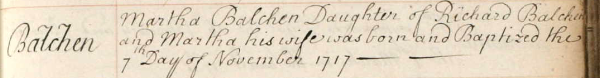 Martha Balchen Daughter of Richard Balchen
Balchen
and Martha his wife was born and Baptized the
7th Day of November 1717